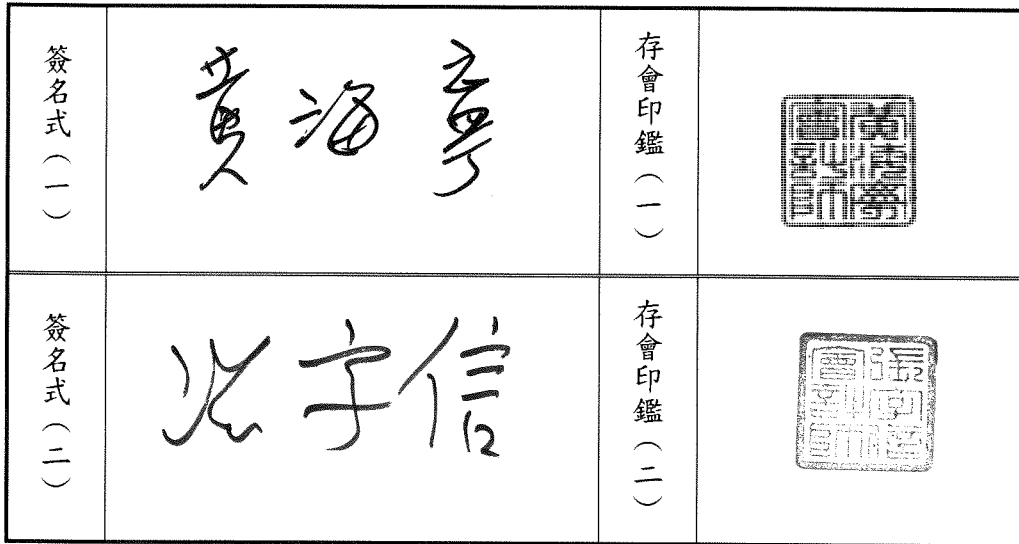 簽名式（一）
黃海寧
存會印鑑（一）
黃海寧
會計師
簽名式（二）
張字信
存會印鑑（二）
張字信
會計師